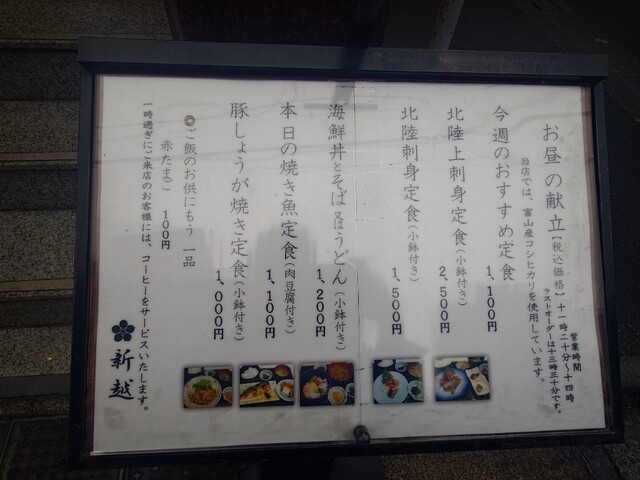 お昼の献立【税込価格】
営業時間
十一時二十分〜十四時
ラストオーダーは十三時三十分です。
当店では、富山産コシヒカリを使用しています。
今週のおすすめ定食
1,100円
北陸上刺身定食(小鉢付き)
2,500円
北陸刺身定食(小鉢付き)
1,500円
海鮮丼とそば又はうどん(小鉢付き)
1,200円
本日の焼き魚定食(肉豆腐付き)
1,100円
豚しょうが焼き定食(小鉢付き)
1,000円
◎ご飯のお供にもう一品
赤たまご 100円
一時過ぎにご来店のお客様には、コーヒーをサービスいたします。
新越